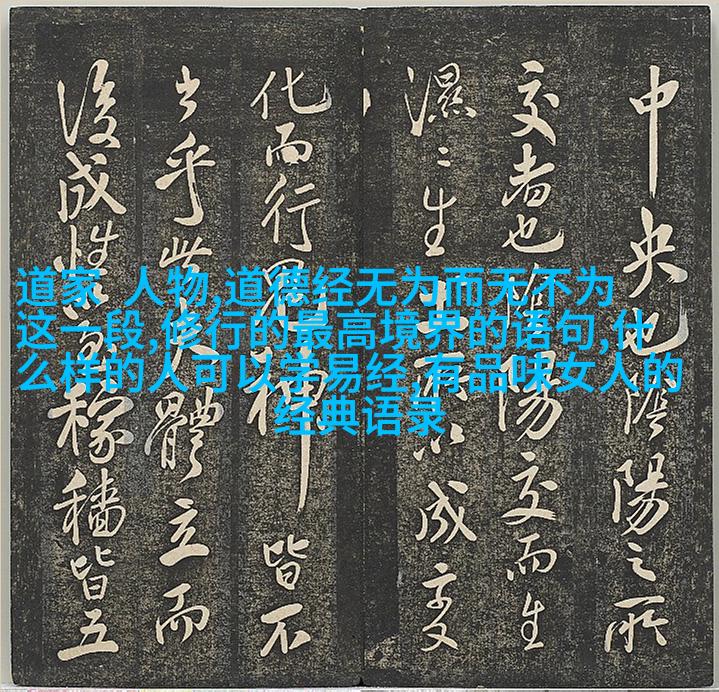 道家 人物,道德经无为而无不为
这一段,修行的最高境界的语句,什
么样的人可以学易经,有品味女人的
经典语录
中央也陰陽之所
交者也陰陽交而生
濕〻生土以成变
化而行鬼神皆不
乎此體立而
後成性稼穡皆五